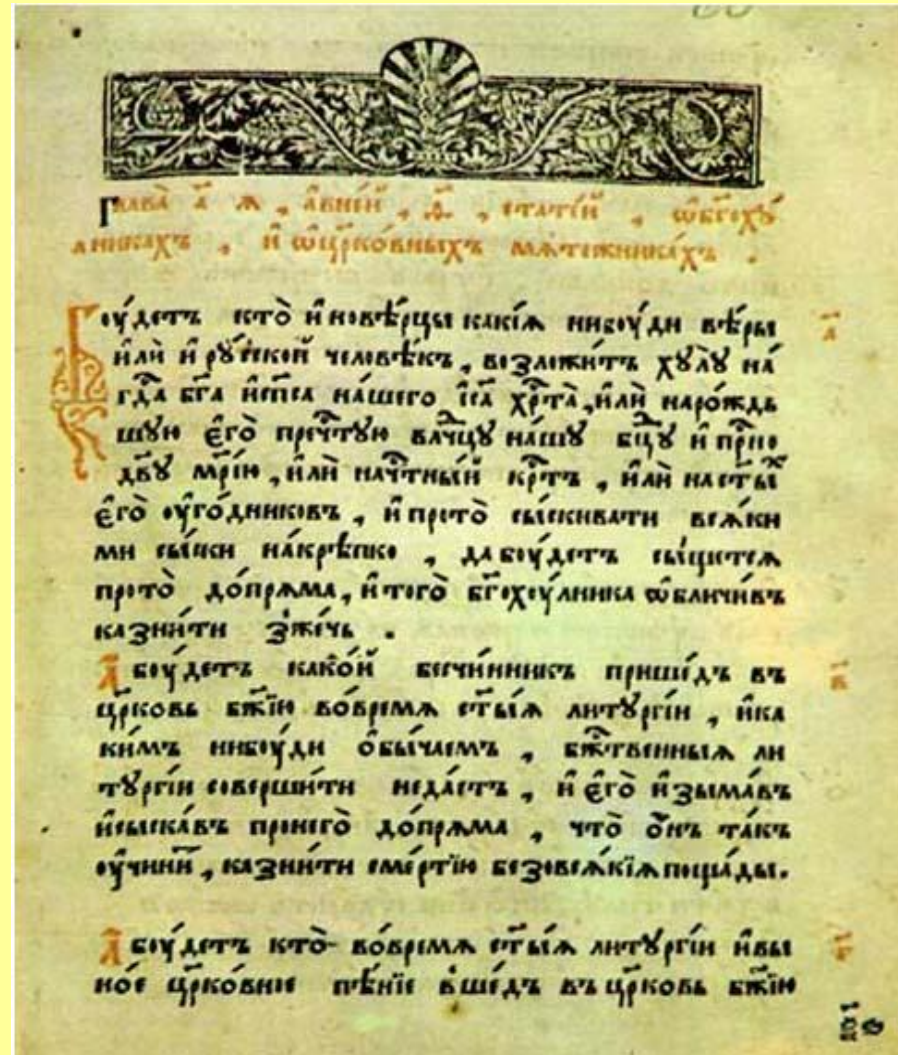 Глава̀ а҃ я , а̓ вне́й , ѳ҃ , статі́й , ѡ҆бг҃оху́
лникахъ , и҆ ѡ҆цр҃ко́вныхъ мяте́жника́хъ .
Боу́детъ кто̀ и҆нове́рцы какі́я нибоу́ди ве́ры
и҆лѝ и҆ ру́сской челове́къ , возложи́тъ хꙋлꙋ̀ на́
гд҃а бг҃а и҆сп҃са на́шего і҆с҃а хр҃та̀ , и҆лѝ наро́ждь
шꙋю є҆го̀ пречⷭ҇тꙋю влⷣчцꙋ на́шꙋ бцⷣꙋ и҆ прⷭ҇но
дв҃ꙋ мр҃і́ю , и҆лѝ начⷭ҇тны́й крⷭ҇тъ , и҆лѝ наст҃ы́ⷯ
є҆го̀ оу҆го́дниковъ , и҆ прото̀ сы́скивати вся́ки
ми сы́ски на́крѣпко , да боу́детъ сы́щется
прото̀ до́пряма , и҆ того̀ бг҃охоу́лника ѡ҆бличи́въ
казни́ти зже́чь .
А҆ боу́детъ како́й бесчи́нникъ прише́дъ въ
цр҃ковь бж҃ію во́время ст҃ы́я литꙋргі́и , и҆ка
ки́мъ нибоу́ди ѻ҆бы́чаемъ , бжⷭ҇твенныя ли
тꙋргі́и соверши́ти неда́стъ , и҆ є҆го̀ и҆зыма́въ
и҆сыска́въ пронего̀ до́пряма , что̀ ѻ҆́нъ та́къ
оу҆чини́т , казни́ти сме́ртію безовся́кія поща́ды .
А҆ боу́детъ кто̀ во́время ст҃ы́я литꙋргі́и и҆вы
но́е цр҃ко́вное пѣ́ніе вше́дъ въ цр҃ковь бж҃ію
а҃
в҃
г҃